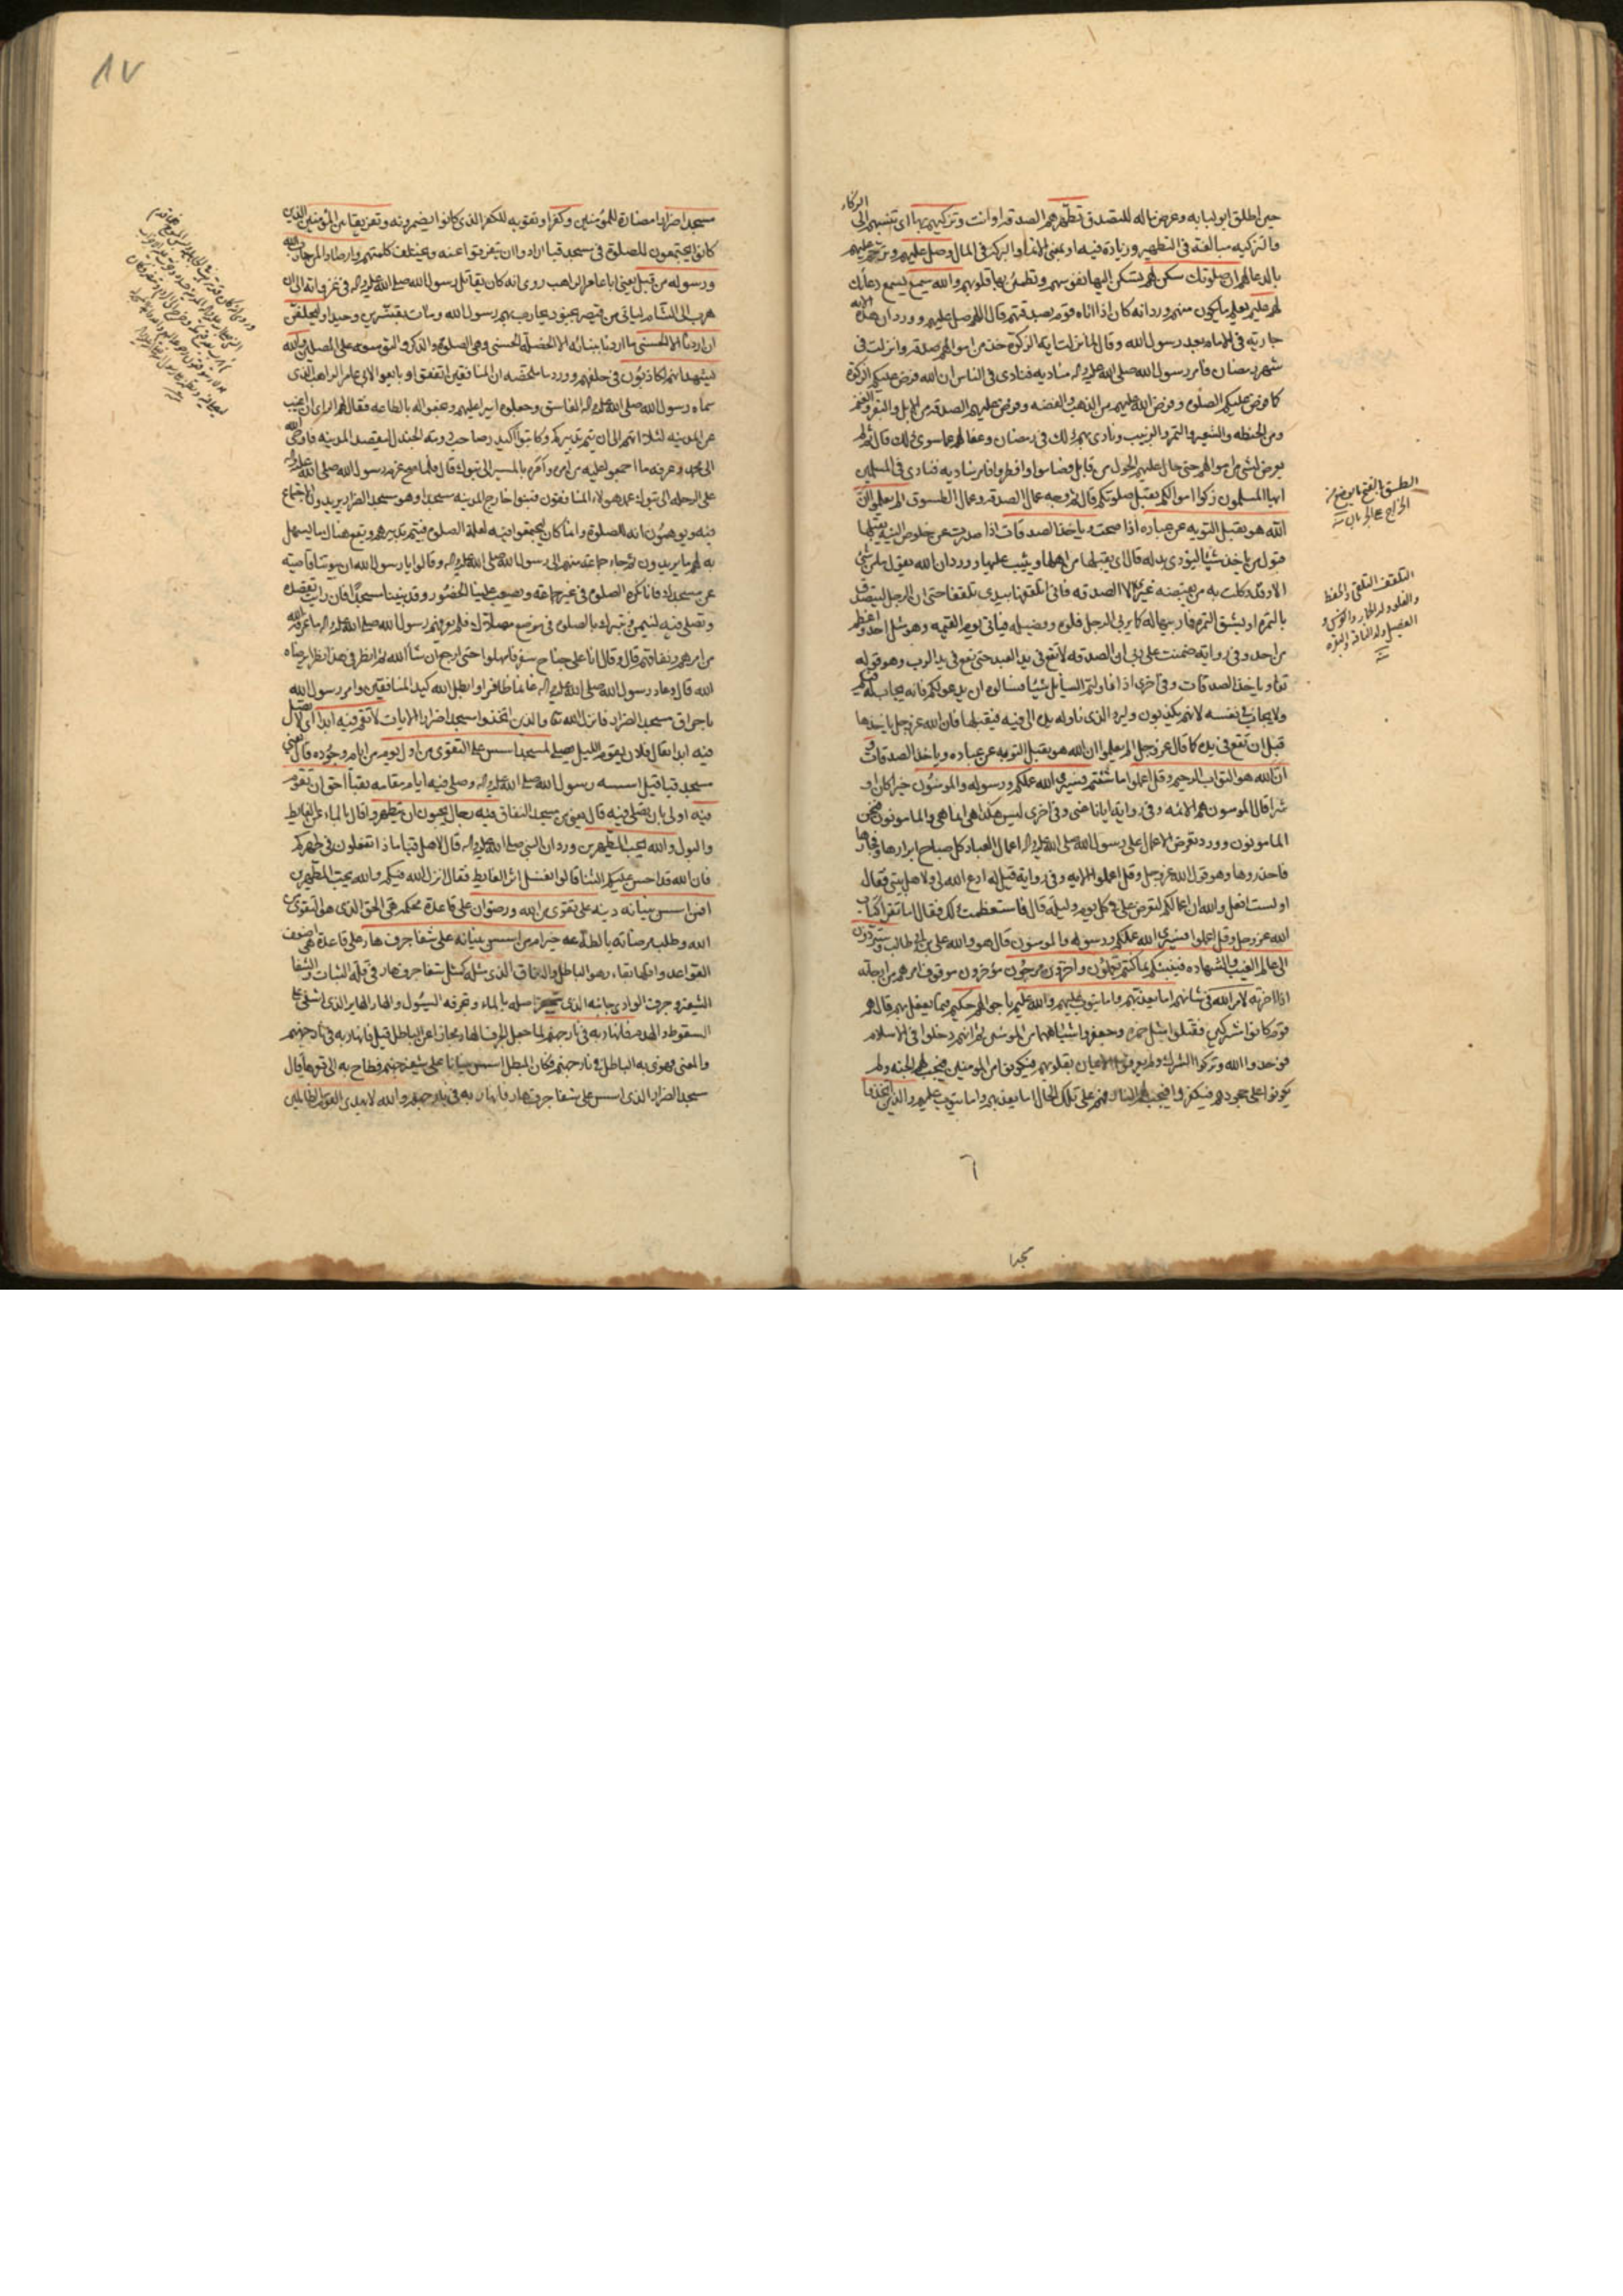 حين اطلق ابو لبابه وعرض ماله للتصدق تطهرهم الصدقه او انت وتزكيهم بها اى تنسبهم الى الزكاء
والتزكيه مبالغة فى التطهير وزيادة فيه او بمعنى الانماء والبركة فى المال وصل عليهم وترحم عليهم
بالدعاء لهم ان صلوتك سكن لهم يسكن اليها نفوسهم وتطمئن بها قلوبهم والله سميع يسمع دعاءك
لهم عليم يعلم ما يكون منهم ورد انه كان اذا اتاه قوم بصدقتهم قال اللهم صل عليهم وورد ان هذه الايه
جارية فى الامام بعد رسول الله وقال لما نزلت اية الزكوة خذ من اموالهم صدقة وانزلت فى
شهر رمضان فامر رسول الله صلى الله عليه واله مناديه فنادى فى الناس ان الله فرض عليكم الزكوة
كما فرض عليكم الصلوة وفرض الله عليهم من الذهب والفضه وفرض عليهم الصدقة من الابل والبقر والغنم
ومن الحنطه والشعير والتمر والزبيب ونادى بهم بذلك فى رمضان وعفا لهم عما سوى ذلك قال ثم لم
يعرض لشى من اموالهم حتى حال عليهم الحول من قابل فصاموا وافطروا فامر مناديه فنادى فى المسلمين
ايها المسلمون زكوا اموالكم تقبل صلوتكم قال ثم وجه عمال الصدقه وعمال الطسوق الم يعلموا ان
الله هو يقبل التوبه عن عباده اذا صحت وياخذ الصدقات اذا صدرت عن خلوص النية يقبلها
قبول من ياخذ شيئا ليؤدى بدله قال اى يقبلها من اهلها ويثيب عليها وورد ان الله يقول ما من شئ
الا وقد وكلت به من يقبضه غيرى الا الصدقه فانى اتلقفها بيدى تلقفا حتى ان الرجل ليتصدق
بالتمرة او بشق التمرة فاربيها له كما يربى الرجل فلوه وفصيله فياتى يوم القيمه وهو مثل احد واعظم
من احد وفى رواية ضمنت على ربى ان الصدقه لا تقع فى يد العبد حتى تقع فى يد الرب وهو قوله
تعالى وياخذ الصدقات وفى اخرى اذا ناولتم السايل شيئا فسالوه ان يدعو لكم فانه يجاب له فيكم
ولا يجاب فى نفسه لانهم يكذبون وليرد الذى ناوله يده الى فيه فيقبلها فان الله عز وجل ياخذها
قبل ان تقع فى يده كما قال عز وجل الم يعلموا ان الله هو يقبل التوبه عن عباده وياخذ الصدقات و
ان الله هو التواب الرحيم وقل اعملوا ما شئتم فسيرى الله عملكم ورسوله والمومنون خيرا كان او
شرا قال المومنون هم الائمه وفى رواية ايانا عنى وفى اخرى ليس هكذا هى انما هى والمامونون فنحن
المامونون وورد تعرض الاعمال على رسول الله صلى الله عليه واله اعمال العباد كل صباح ابرارها وفجارها
فاحذروها وهو قول الله عز وجل وقل اعملوا الايه وفى رواية قيل له ادع الله لى ولاهل بيتى فقال
اولست افعل والله ان اعمالكم لتعرض على فى كل يوم وليلة قال فاستعظمت ذلك فقال اما تقرا كتاب
الله عز وجل وقل اعملوا فسيرى الله عملكم ورسوله والمومنون قال هو والله على بن ابى طالب وستردون
الى عالم الغيب والشهاده فينبئكم بما كنتم تعملون واخرون مرجون مؤخرون موقوف امرهم من ارجاته
اذا اخرته لامر الله فى شانهم اما يعذبهم واما يتوب عليهم والله عليم باحوالهم حكيم فيما يفعل بهم قال هم
قوم كانوا مشركين فقتلوا مثل حمزه وجعفر واشباههما من المومنين ثم انهم دخلوا فى الاسلام
فوحدوا الله وتركوا الشرك ولم يعرفوا الايمان بقلوبهم فيكونوا من المومنين فيجب لهم الجنه ولم
يكونوا على جحودهم فيكفروا فيجب لهم النار فهم على تلك الحال اما يعذبهم واما يتوب عليهم والذين اتخذوا
الطسق بالفتح ما يوضع من
الخراج على الجربان
التلقف التلقى والحفظ
والفلو ولد الحمار والفرس و
الفصيل ولد الناقه والبقره
٦
٨٧
مسجدا ضرارا مضارة للمؤمنين وكفرا وتقوية للكفر الذى كانوا يضمرونه وتفريقا بين المؤمنين الذين
كانوا يجتمعون للصلوة فى مسجد قبا ارادوا ان يتفرقوا عنه ويختلف كلمتهم وارصادا لمن حارب الله
ورسوله من قبل يعنى ابا عامر الراهب روى انه كان يقاتل رسول الله صلى الله عليه واله فى غزواته الى ان
هرب الى الشام لياتى من قيصر بجنود يحارب بهم رسول الله ومات بقنسرين وحيدا وليحلفن
ان اردنا الا الحسنى ما اردنا ببنائه الا الخصلة الحسنى وهى الصلوة والذكر والتوسعه على المصلين والله
يشهد انهم لكاذبون فى حلفهم وورد ما ملخصه ان المنافقين اتفقوا وبايعوا لابى عامر الراهب الذى
سماه رسول الله صلى الله عليه واله الفاسق وجعلوه اميرا عليهم وبخعوا له بالطاعه فقال لهم الراى ان اغيب
عن المدينه لئلا اتهم الى ان يتم تدبيركم وكاتبوا اكيدر صاحب دومة الجندل ليقصد المدينه فاوحى الله
الى محمد وعرفه ما اجمعوا عليه من امره وامره بالمسير الى تبوك قال فلما صح عزم رسول الله صلى الله عليه واله
على الرحله الى تبوك عمد هولاء المنافقون فبنوا خارج المدينه مسجدا وهو مسجد الضرار يريدون الاجتماع
فيه ويوهمون انه للصلوة وانما كان ليجتمعوا فيه لعلة الصلوة فيتم تدبيرهم ويقع هناك ما يسهل
به لهم ما يريدون ثم جاء جماعة منهم الى رسول الله صلى الله عليه واله وقالوا يا رسول الله ان بيوتنا قاصية
عن مسجدك وانا نكره الصلوة فى غير جماعة ويصعب علينا الحضور وقد بنينا مسجدا فان رايت تقصده
وتصلى فيه لنتيمن ونتبرك بالصلوة فى موضع مصلاك فلم يعرفهم رسول الله صلى الله عليه واله ما عرفه الله
من امرهم ونفاقهم قال وقال انا على جناح سفر فامهلوا حتى ارجع ان شا الله ثم انظر فى هذا نظرا يرضاه
الله قال وعاد رسول الله صلى الله عليه واله غانما ظافرا وابطل الله كيد المنافقين وامر رسول الله
باحراق مسجد الضرار فانزل الله تعالى والذين اتخذوا مسجدا ضرارا الايات لا تقم فيه ابدا اى لا تصل
فيه ابدا يقال فلان يقوم الليل يصلى لمسجد اسس على التقوى من اول يوم من ايام وجوده قال يعنى
مسجد قبا قيل اسسه رسول الله صلى الله عليه واله وصلى فيه ايام مقامه بقبا احق ان تقوم
فيه اولى بان تصلى فيه قال يعنى من مسجد النفاق فيه رجال يحبون ان يتطهروا قال بالماء عن الغايط
والبول والله يحب المطهرين ورد ان النبى صلى الله عليه واله قال لاهل قبا ماذا تفعلون فى طهركم
فان الله قد احسن عليكم الثنا قالوا نغسل اثر الغايط فقال انزل الله فيكم والله يحب المطهرين
افمن اسس بنيانه دينه على تقوى من الله ورضوان على قاعدة محكمة هى الحق الذى هو التقوى من
الله وطلب مرضاته بالطاعه خير امن اسس بنيانه على شفا جرف هار على قاعدة هى اضعف
القواعد واقلها بقاء وهو الباطل والنفاق الذى مثله كمثل شفا جرف هار فى قلة الثبات والشفا
الشفير وجرف الوادى جانبه الذى ينحفر اصله بالماء وتجرفه السيول والهار الهاير الذى اشفى على
السقوط والهدم فانهار به فى نار جهنم لما جعل الجرف الهار مجازا عن الباطل قيل فانهار به فى نار جهنم
والمعنى فهوى به الباطل فى نار جهنم فكان المبطل اسس بنيانا على شفير جهنم فطاح به الى قعرها قال
مسجد الضرار الذى اسس على شفا جرف هار فانهار به فى نار جهنم والله لا يهدى القوم الظالمين